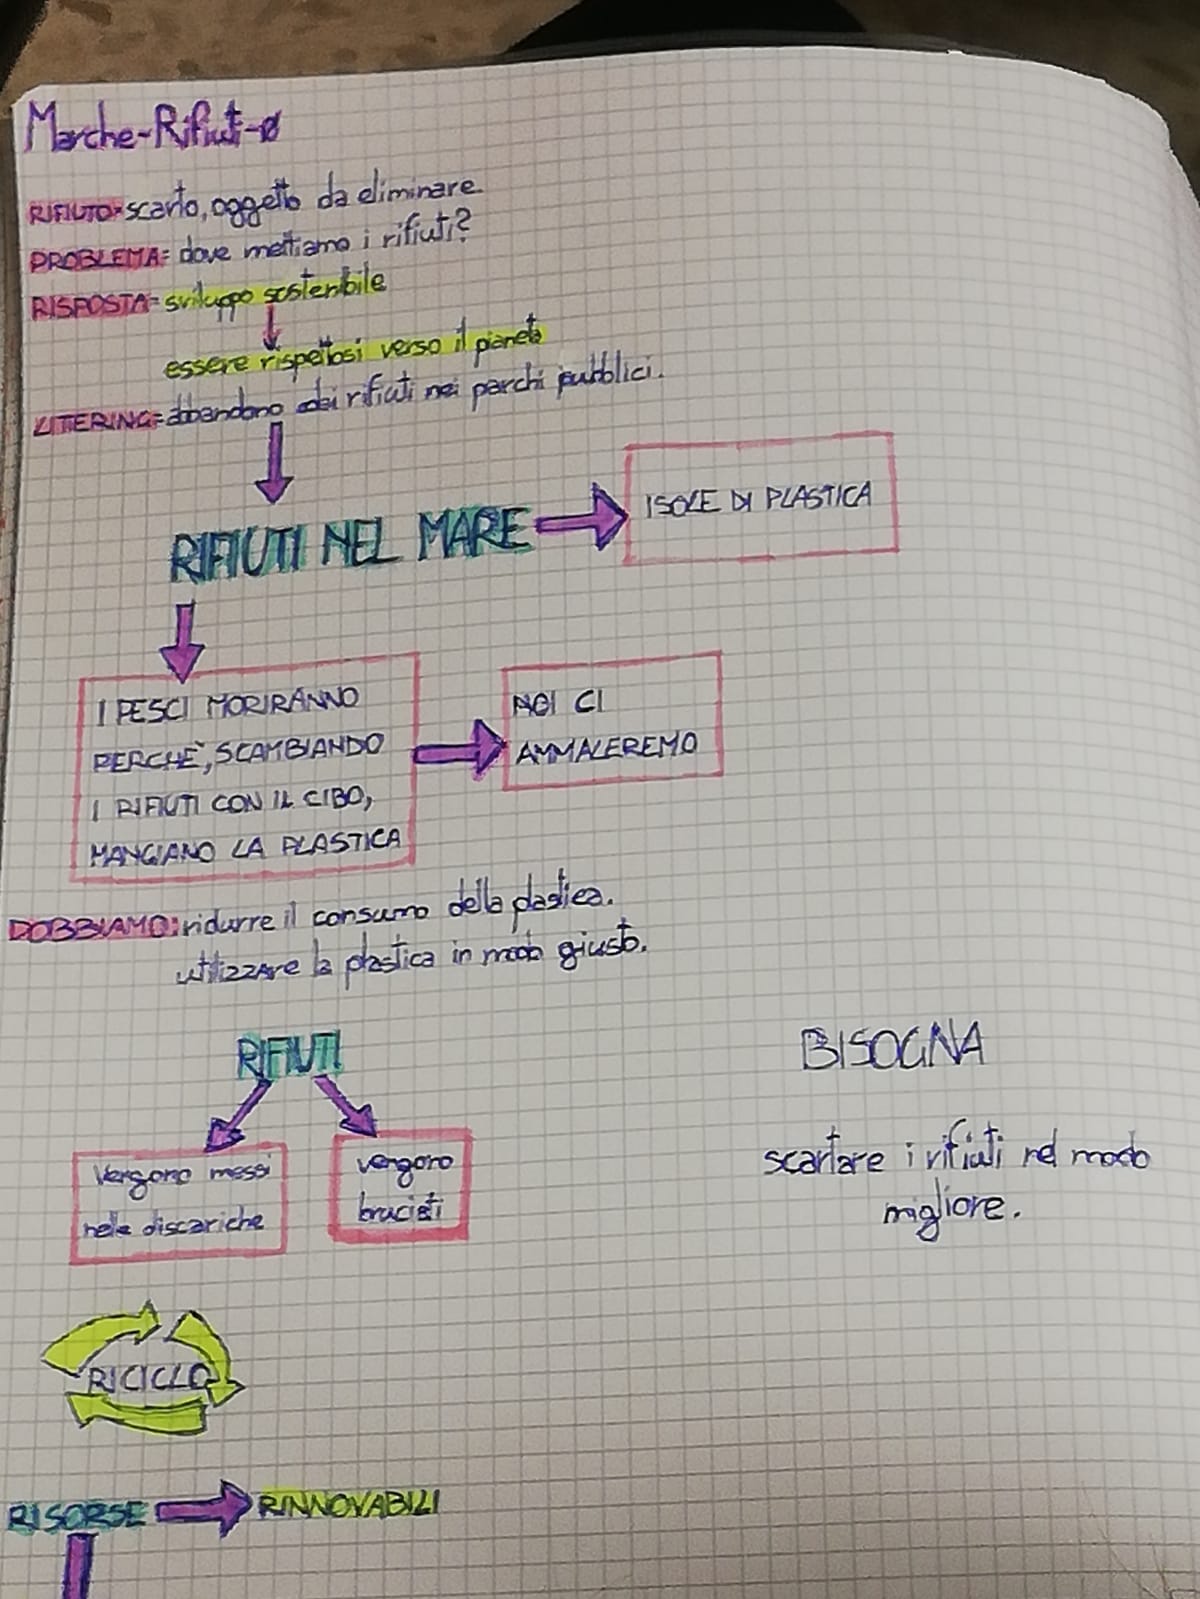 Marche-Rifiuti-0
RIFIUTO= scarto, oggetto da eliminare
PROBLEMA= dove mettiamo i rifiuti?
RISPOSTA= sviluppo sostenibile
essere rispettosi verso il pianeta
LITTERING= abbandono dei rifiuti nei parchi pubblici.
RIFIUTI NEL MARE
ISOLE DI PLASTICA
I PESCI MORIRANNO
PERCHÈ, SCAMBIANDO
I RIFIUTI CON IL CIBO,
MANGIANO LA PLASTICA
NOI CI
AMMALEREMO
DOBBIAMO: ridurre il consumo della plastica.
utilizzare la plastica in modo giusto.
RIFIUTI
Vengono messi
nelle discariche
vengono
bruciati
BISOGNA
scartare i rifiuti nel modo
migliore.
RICICLO
RISORSE
RINNOVABILI